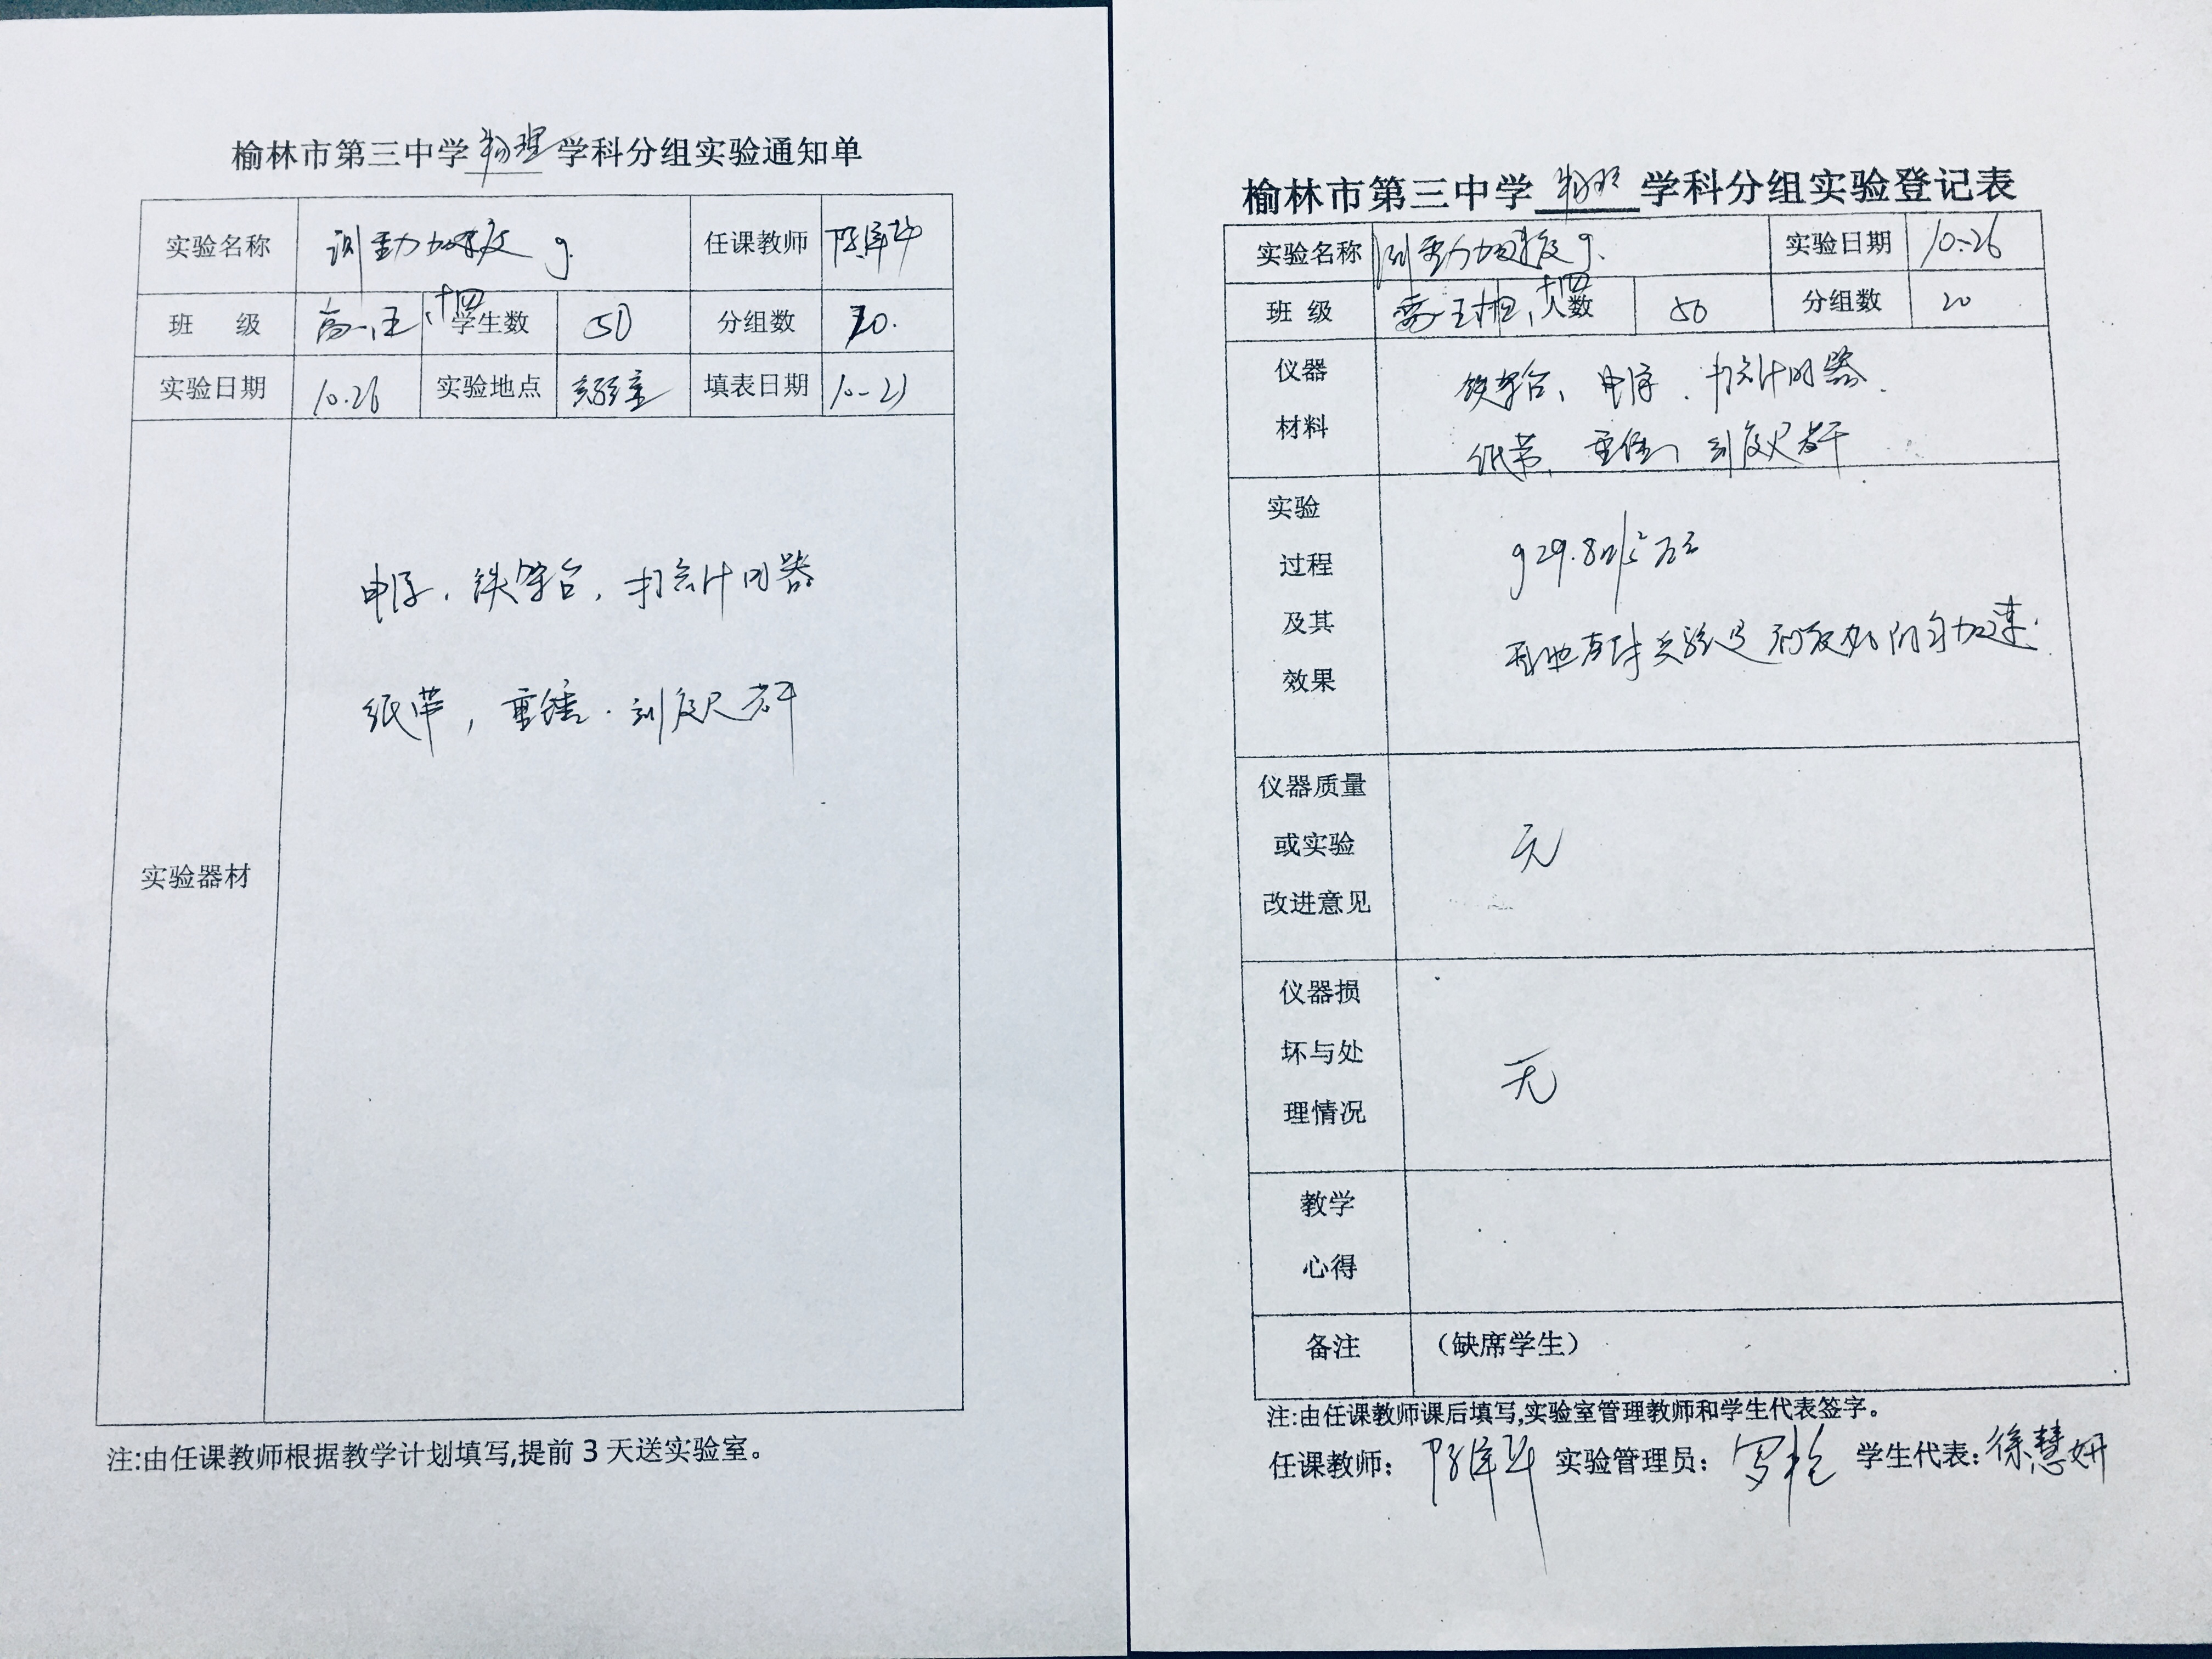 榆林市第三中学物理学科分组实验通知单
实验名称 测重力加速度 g. 任课教师
班 级 高一、五、十四 学生数 50 分组数 20.
实验日期 10.26 实验地点 实验室 填表日期 10-23
实验器材
电源、铁架台、打点计时器
纸带, 重锤. 刻度尺若干
注:由任课教师根据教学计划填写,提前 3 天送实验室。
榆林市第三中学物理学科分组实验登记表
实验名称 测重力加速度 g. 实验日期 10-26
班 级 十四 人数 50 分组数 20
仪器
材料
铁架台、电源、打点计时器.
纸带、重锤、刻度尺若干
实验
过程
及其
效果
g=9.8m/s²左右
仪器质量
或实验
改进意见
无
仪器损
坏与处
理情况
无
教学
心得
备注 (缺席学生)
注:由任课教师课后填写,实验室管理教师和学生代表签字。
任课教师: 实验管理员: 学生代表:徐慧妍